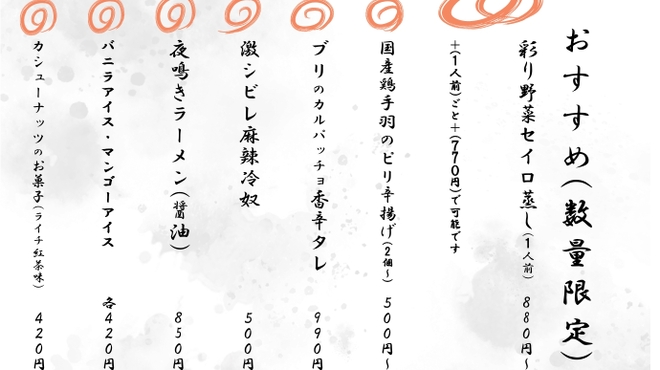 おすすめ(数量限定)
彩り野菜セイロ蒸し(1人前) 880円~
+(1人前)ごと+(770円)で可能です
国産鶏手羽のピリ辛揚げ(2個~) 500円~
ブリのカルパッチョ香辛タレ 990円
激シビレ麻辣冷奴 500円
夜鳴きラーメン(醤油) 850円
バニラアイス・マンゴーアイス 各420円
カシューナッツのお菓子(ライチ紅茶味) 420円